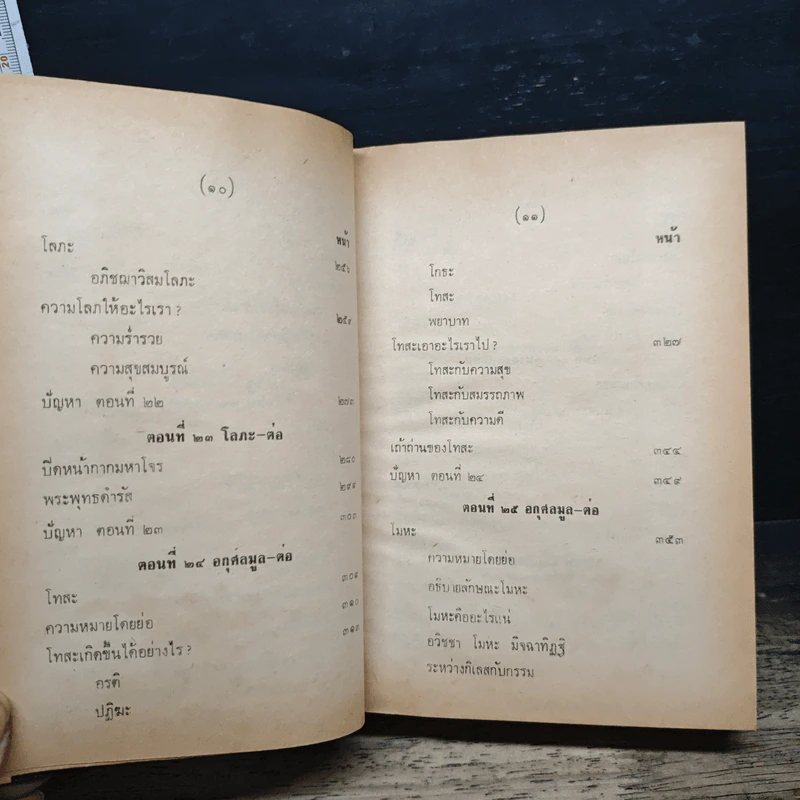 20
(๑๐)
หน้า
โลภะ ๒๕๖
อภิชฌาวิสมโลภะ
ความโลภให้อะไรเรา ? ๒๕๙
ความร่ำรวย
ความสุขสมบูรณ์
ปัญหา ตอนที่ ๒๒ ๒๗๓
ตอนที่ ๒๓ โลภะ-ต่อ
บีดหน้ากากมหาโจร ๒๘๐
พระพุทธดำรัส ๒๙๙
ปัญหา ตอนที่ ๒๓ ๓๐๓
ตอนที่ ๒๔ อกุศลมูล-ต่อ
โทสะ ๓๐๙
ความหมายโดยย่อ ๓๑๐
โทสะเกิดขึ้นได้อย่างไร ? ๓๑๓
อรติ
ปฏิฆะ
(๑๑)
หน้า
โกธะ
โทสะ
พยาบาท
โทสะเอาอะไรเราไป ? ๓๒๗
โทสะกับความสุข
โทสะกับสมรรถภาพ
โทสะกับความดี
เถ้าถ่านของโทสะ ๓๔๔
ปัญหา ตอนที่ ๒๔ ๓๔๙
ตอนที่ ๒๕ อกุศลมูล-ต่อ
โมหะ ๓๕๓
ความหมายโดยย่อ
อธิบายลักษณะโมหะ
โมหะคืออะไรแน่
อวิชชา โมหะ มิจฉาทิฏฐิ
ระหว่างกิเลสกับกรรม